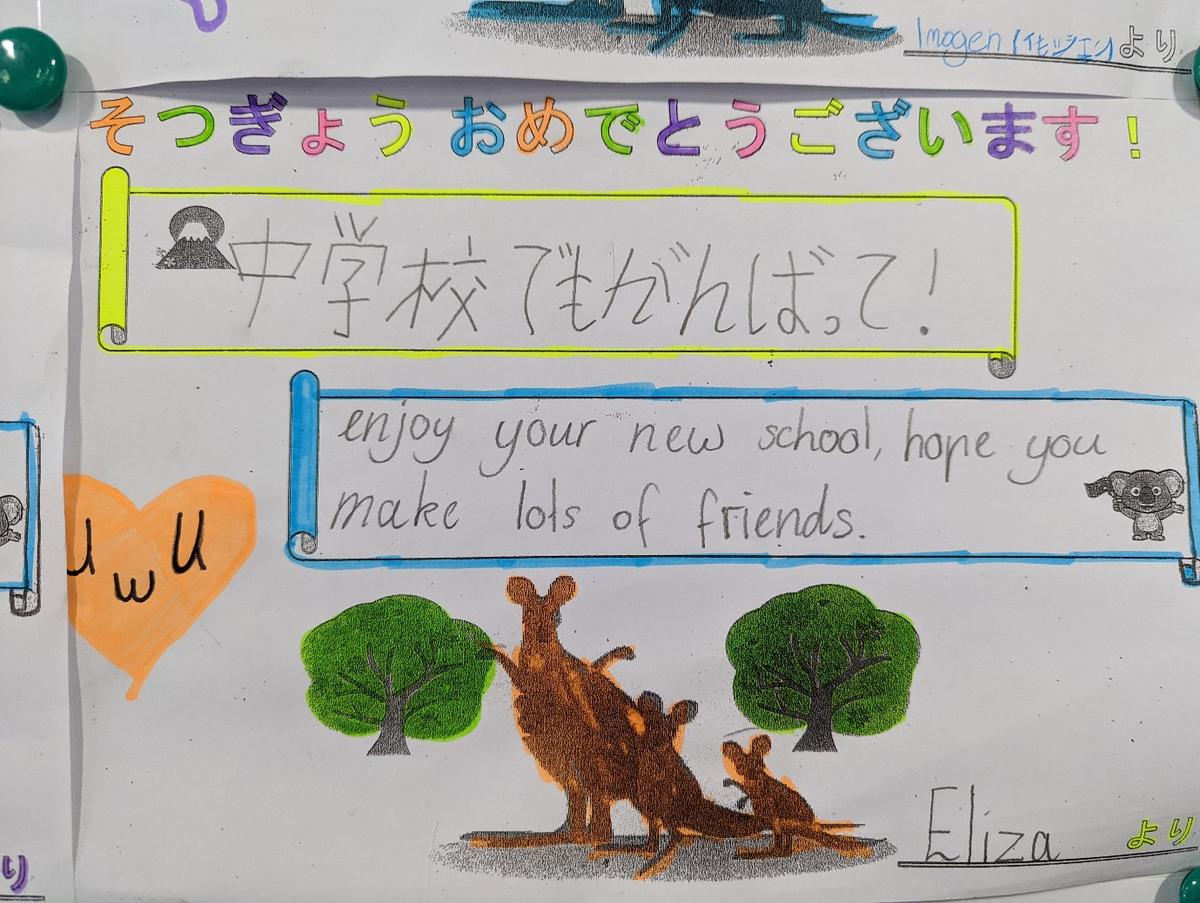 Imogen (イモジェン)より
そつぎょう おめでとうございます!
中学校でもがんばって!
enjoy your new school, hope you
make lots of friends.
U w U
Eliza より
り